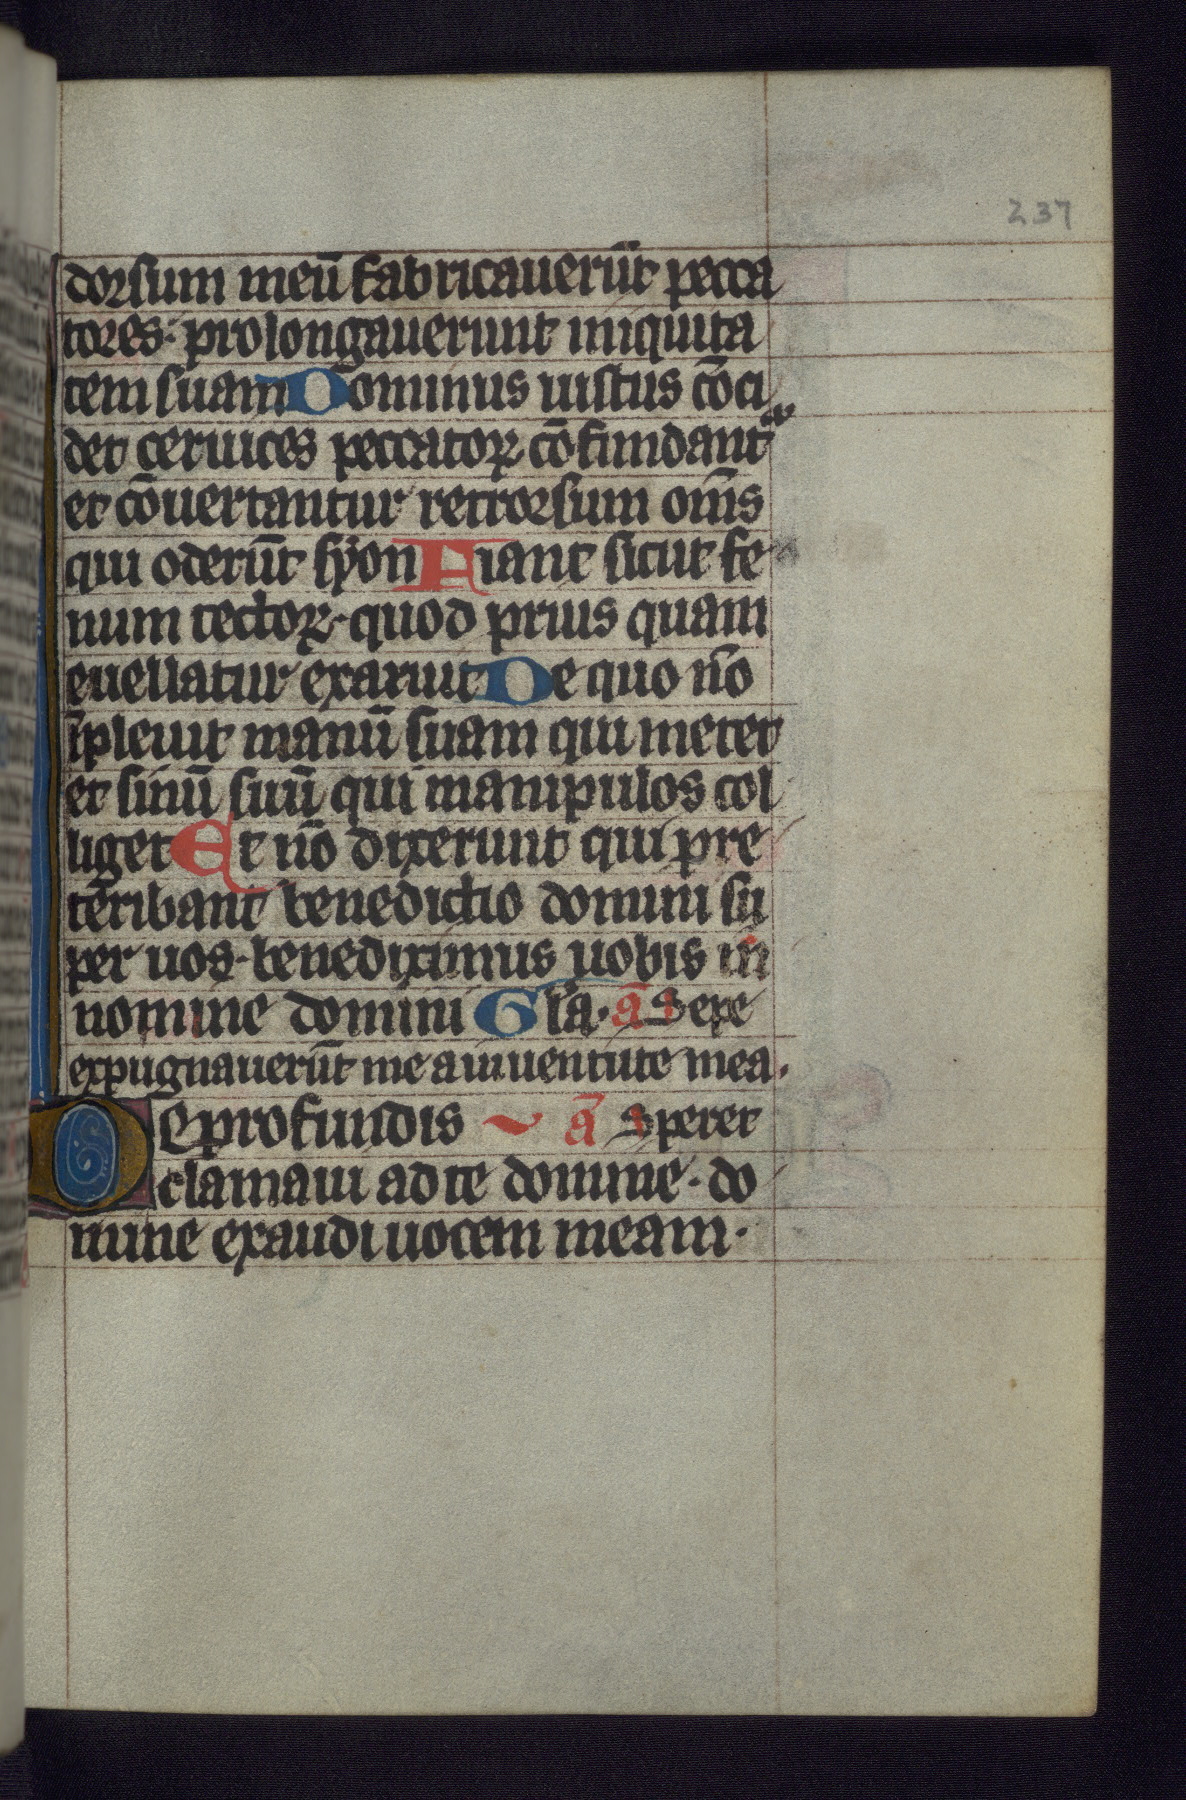 237
dorsum meū fabricauerūt pecca
tores· prolongauerunt iniquita
tem suam Dominus iustus cōci
det ceruices peccatoꝝ cōfundant᷑
et cōuertantur retrorsum om̄s
qui oderūt syon Fiant sicut fe
num tectoꝝ· quod prius quam
euellatur exaruit De quo nō
īpleuit manū suam qui metet
et sinū suū qui manipulos col
liget Et nō dixerunt qui pre
teribant benedictio domini su
per uos· benediximus uobis in
nomine domini Gl̄a· ā Sepe
expugnauerūt me a iuuentute mea·
De profundis ā Speret
clamaui ad te domine· do
mine exaudi uocem meam·